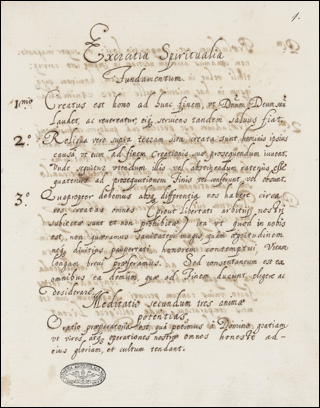 1.
Exercitia Spiritualia
Fundamentum.
1.mo Creatus est homo ad hunc finem, ut Dnum Deum suũ
laudet, ac revereatur, eiq, serviens tandem salvus fiat.
2.o Reliqua vero supra terram sita creata sunt hominis ipsius
causa, ut eum ad finem creationis suae prosequendum iuvent.
Unde sequitur utendum illis vel abstinendum eatenus esse
quatenus ad prosecutionem finis conferunt, vel obsunt.
3.o Quapropter debemus absq differentia nos habere circa
res creatas omnes
subiectae sunt et non prohibitae ita ut quod in nobis
est, non quaeramus sanitatem magis quam aegritudinem
neq divitias paupertati, honorem contemptui, Vitam
longam brevi praeferamus. Sed consentaneum est ea
omnibus ea demum, quae ad finem ducunt eligere ac
desiderare.
Meditatio secundum tres animae
potentias.
Oratio praeparatoria est, qua petimus a Domino gratiam
ut vires, atq operationes nostrae omnes honeste ad
eius gloriam, et cultum tendant.